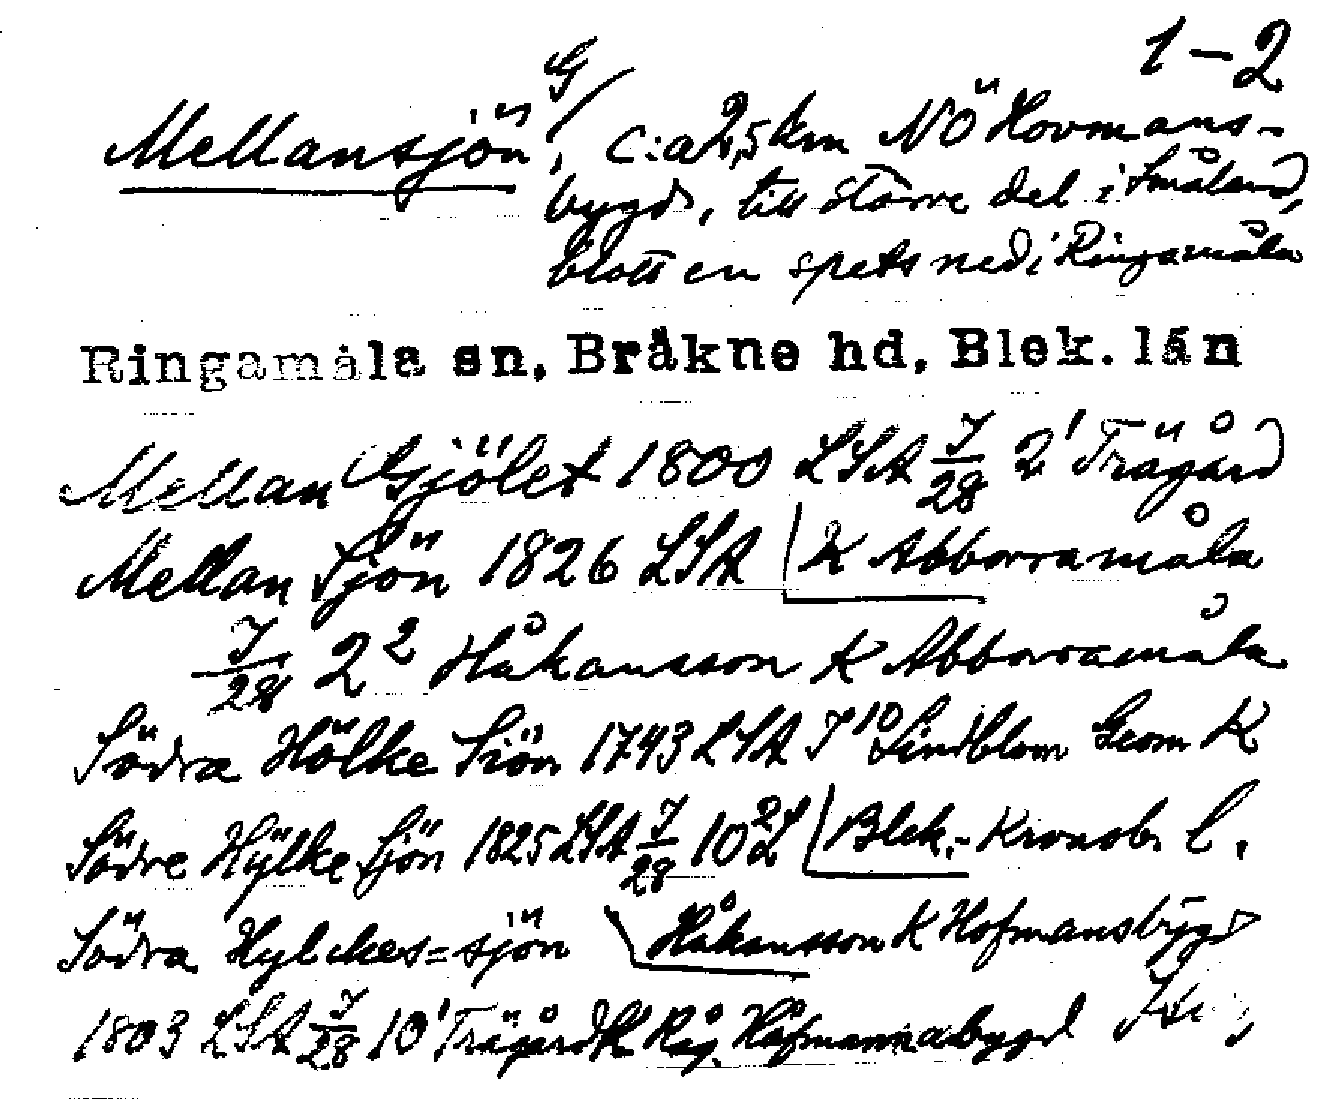 1–2
G
Mellansjön, c:a 2,5 km NÖ Hovmans-
bygd, till större del i Småland,
blott en spets ned i Ringamåla
Ringamåla sn, Bräkne hd, Blek. län
Mellan Gjölet 1800 LSA J/28 2¹ Trägård
Mellan Sjön 1826 LSA K Abborramåla
J/28 2² Håkansson K Abborramåla
Södra Hölke Siön 1743 LSA J 10 Lindblom Geom K
Södre Hylke Sjön 1825 LSA J/28 10² L Blek.- Kronob. l.
Södra Hylckes=sjön Håkansson K Hofmansbygd
1803 LSA J/28 10¹ Trägård K Råg. Håfmannabygd